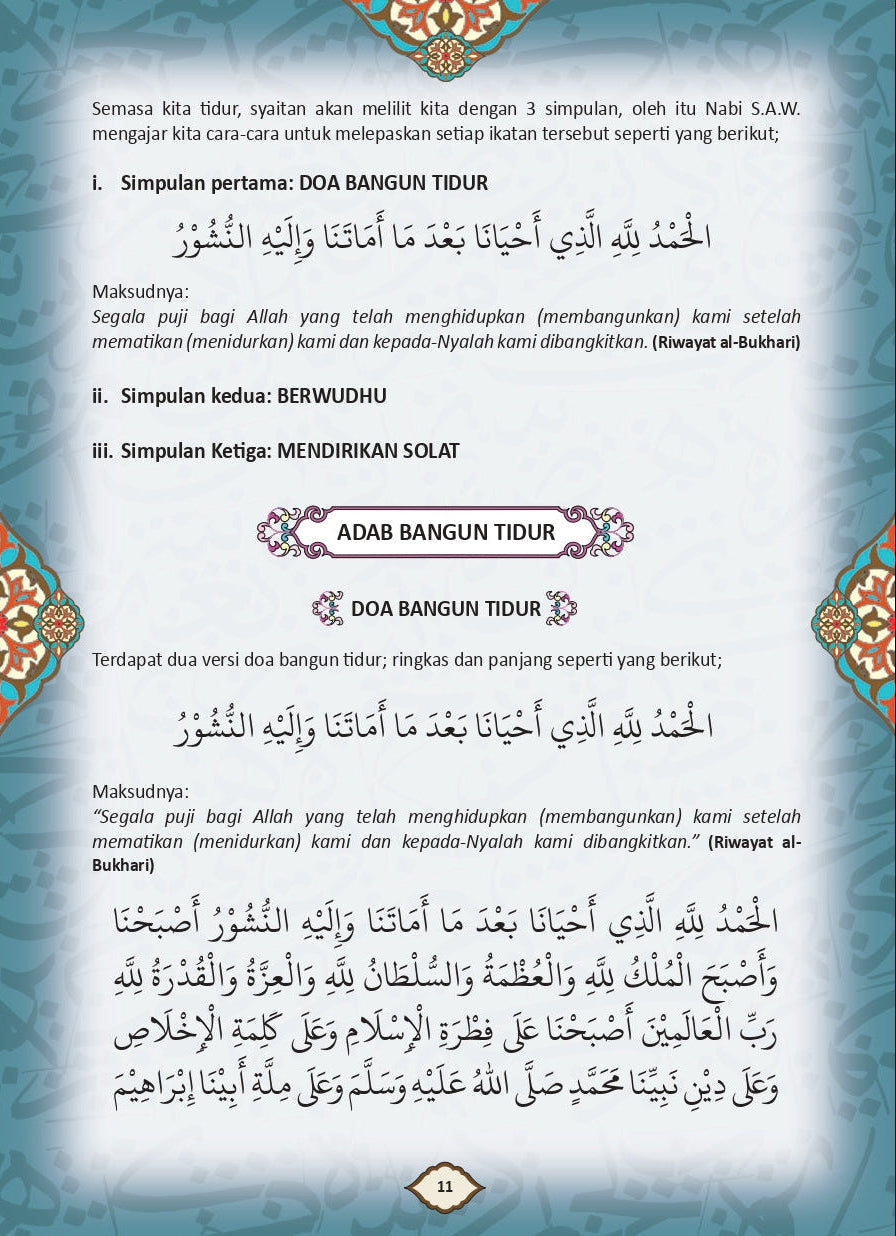 Semasa kita tidur, syaitan akan melilit kita dengan 3 simpulan, oleh itu Nabi S.A.W.
mengajar kita cara-cara untuk melepaskan setiap ikatan tersebut seperti yang berikut;
i. Simpulan pertama: DOA BANGUN TIDUR
الْحَمْدُ لِلَّهِ الَّذِي أَحْيَانَا بَعْدَ مَا أَمَاتَنَا وَإِلَيْهِ النُّشُوْرُ
Maksudnya:
Segala puji bagi Allah yang telah menghidupkan (membangunkan) kami setelah
mematikan (menidurkan) kami dan kepada-Nyalah kami dibangkitkan. (Riwayat al-Bukhari)
ii. Simpulan kedua: BERWUDHU
iii. Simpulan Ketiga: MENDIRIKAN SOLAT
ADAB BANGUN TIDUR
DOA BANGUN TIDUR
Terdapat dua versi doa bangun tidur; ringkas dan panjang seperti yang berikut;
الْحَمْدُ لِلَّهِ الَّذِي أَحْيَانَا بَعْدَ مَا أَمَاتَنَا وَإِلَيْهِ النُّشُوْرُ
Maksudnya:
“Segala puji bagi Allah yang telah menghidupkan (membangunkan) kami setelah
mematikan (menidurkan) kami dan kepada-Nyalah kami dibangkitkan.” (Riwayat al-
Bukhari)
الْحَمْدُ لِلَّهِ الَّذِي أَحْيَانَا بَعْدَ مَا أَمَاتَنَا وَإِلَيْهِ النُّشُوْرُ أَصْبَحْنَا
وَأَصْبَحَ الْمُلْكُ لِلَّهِ وَالْعُظْمَةُ وَالسُّلْطَانُ لِلَّهِ وَالْعِزَّةُ وَالْقُدْرَةُ لِلَّهِ
رَبِّ الْعَالَمِيْنَ أَصْبَحْنَا عَلَى فِطْرَةِ الْإِسْلَامِ وَعَلَى كَلِمَةِ الْإِخْلَاصِ
وَعَلَى دِيْنِ نَبِيِّنَا مُحَمَّدٍ صَلَّى اللهُ عَلَيْهِ وَسَلَّمَ وَعَلَى مِلَّةِ أَبِيْنَا إِبْرَاهِيْمَ
11